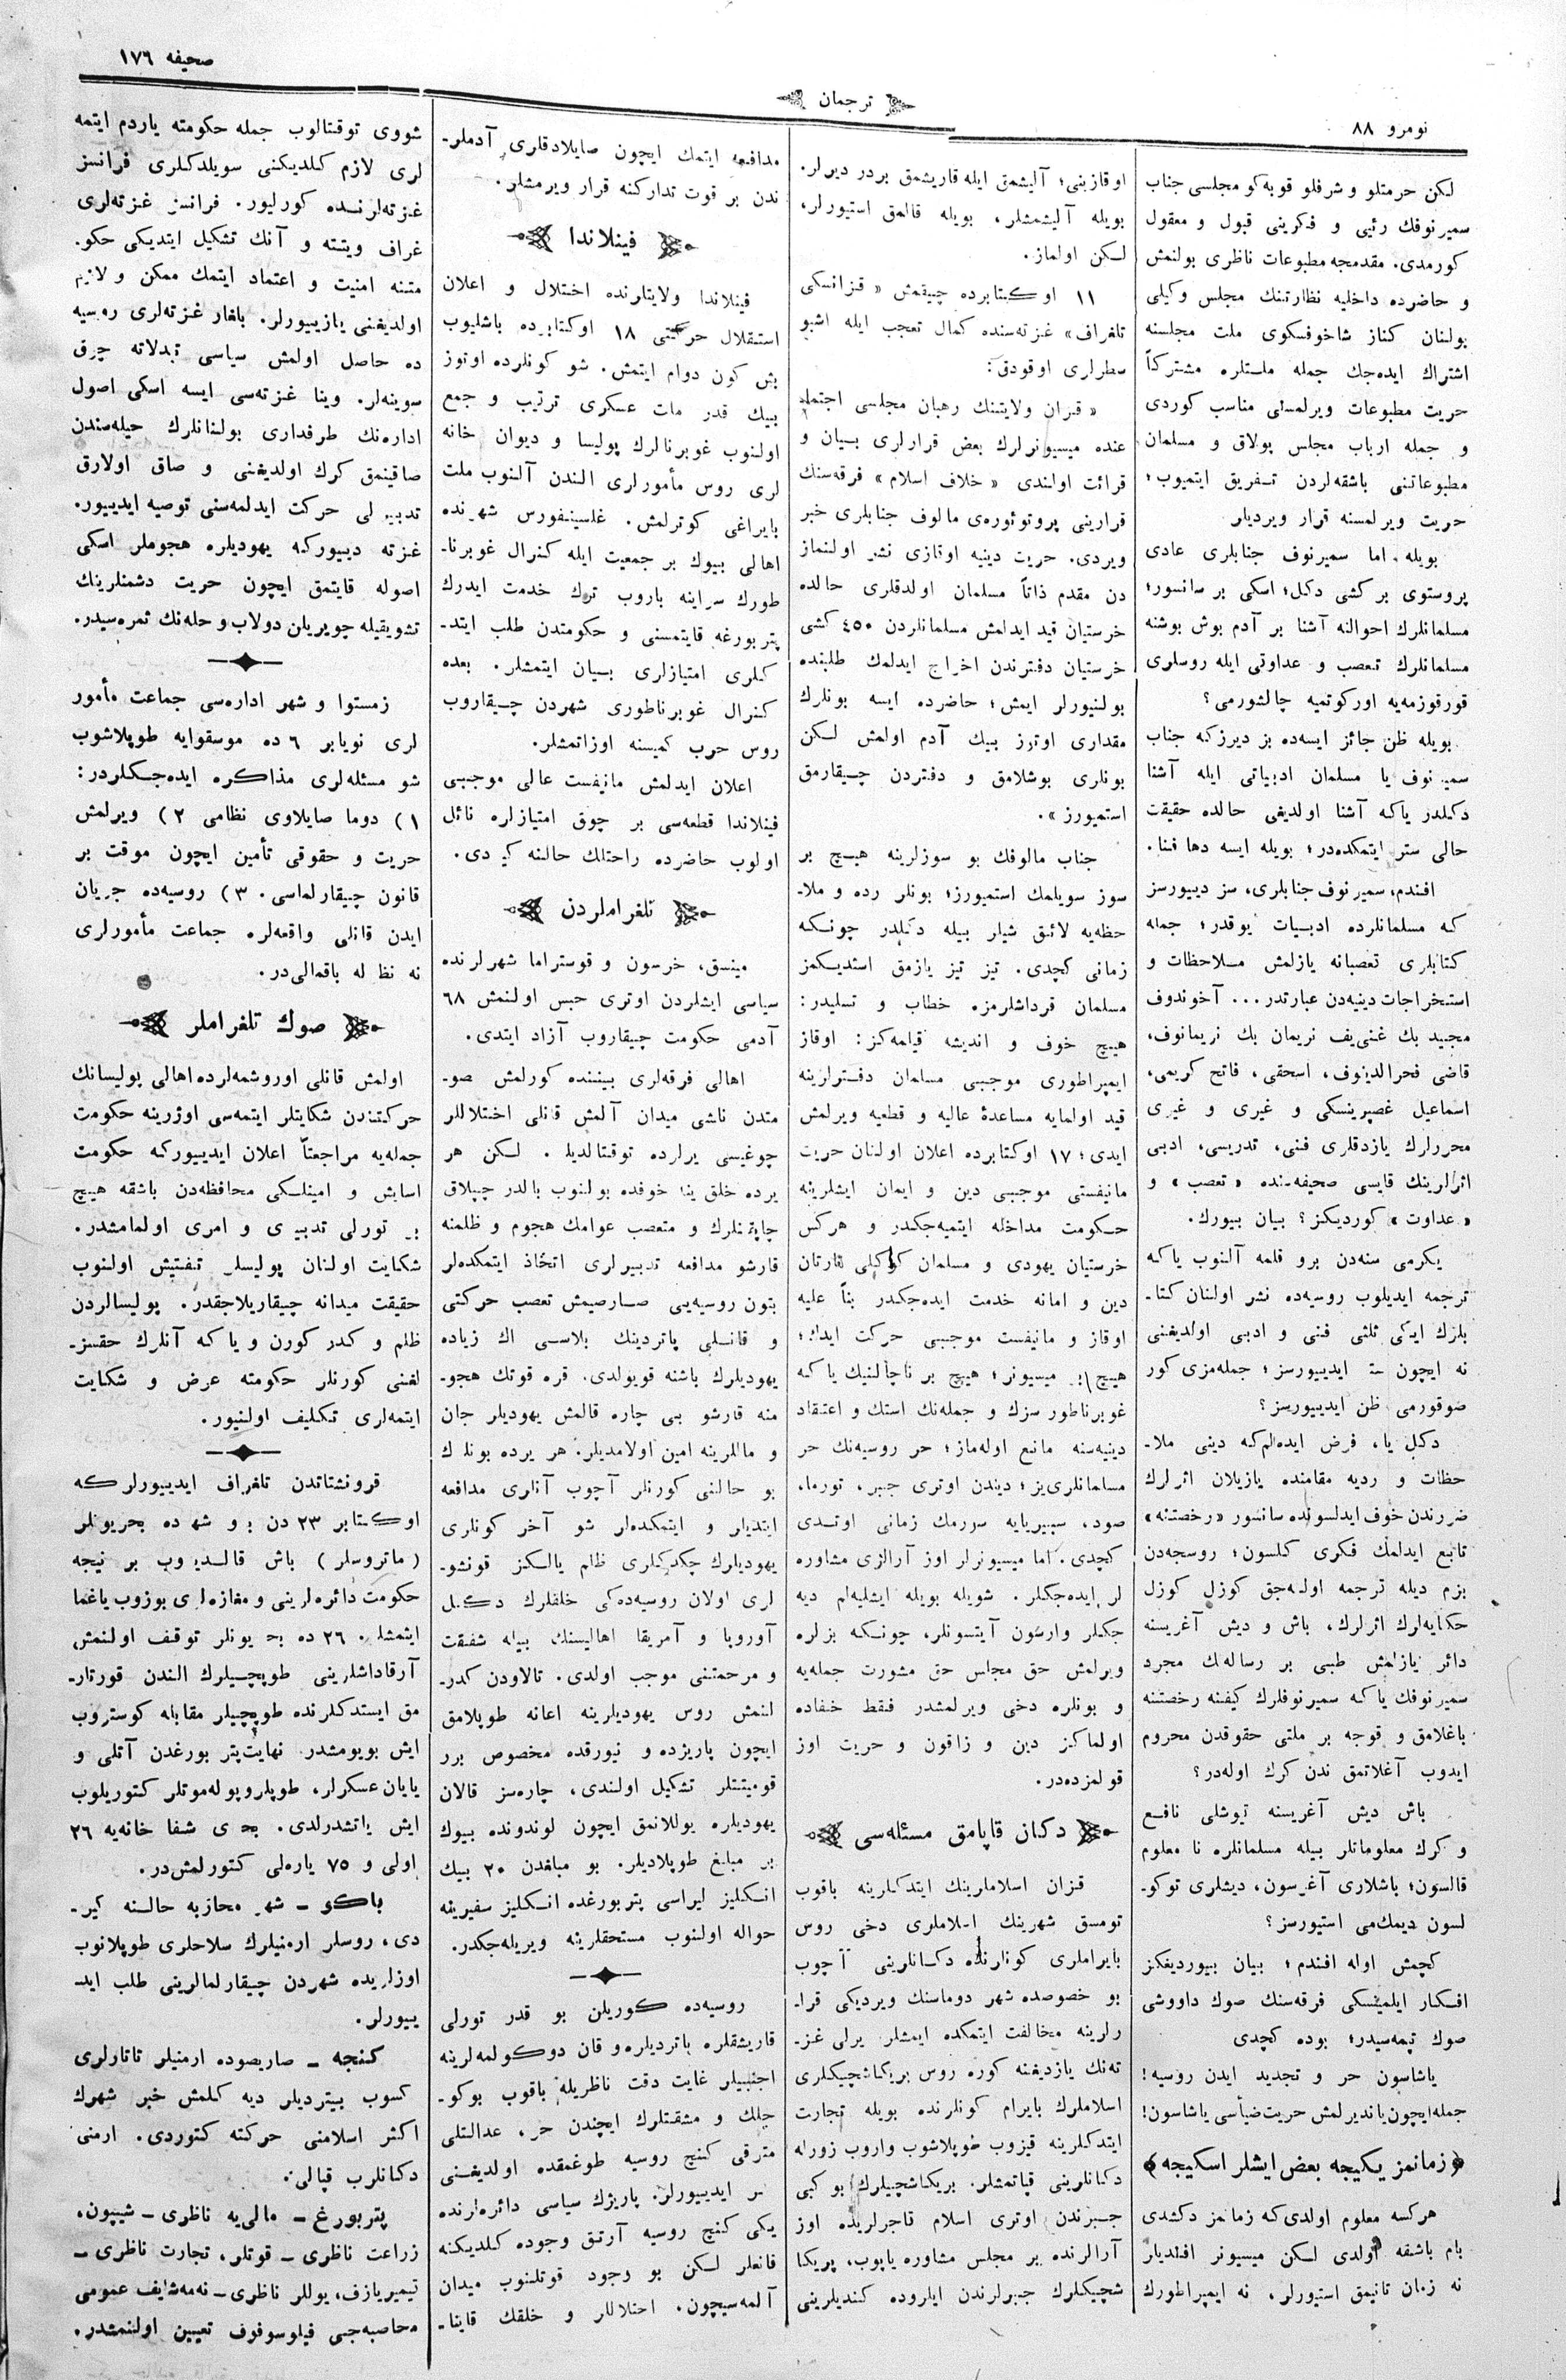 صحیفه ١٧٦
ترجمان
نومرو ٨٨
لكن حرمتلو و شرفلو قوبه‌كو مجلسی جناب
سمیرنوفك رئیی و فكرینی قبول و معقول
كورمدی. مقدمجه مطبوعات ناظری بولنمش
و حاضرده داخلیه نظارتنك مجلس وكیلی
بولنان كناز شاخوفسكوی ملت مجلسنه
اشتراك ایده‌جك جمله ملتلره مشتركاً
حریت مطبوعات ویرلمسنی مناسب كوردی
و جمله ارباب مجلس بولاق و مسلمان
مطبوعاتنی باشقه‌لردن تفریق ایتمیوب؛
حریت ویرلمسنه قرار ویردیلر
بویله. اما سمیرنوف جنابلری عادی
پروستوی بر كشی دكل؛ اسكی بر سانسور؛
مسلمانلرك احوالنه آشنا بر آدم بوش بوشنه
مسلمانلرك تعصب و عداوتی ایله روسلری
قورقوزمه‌یه اوركوتمیه چالشورمی؟
بویله ظن جائز ایسه‌ده بز دیرزكه جناب
سمیرنوف یا مسلمان ادبیاتی ایله آشنا
دكلدر یاكه آشنا اولدیغی حالده حقیقت
حالی ستر ایتمكده‌در؛ بویله ایسه دها فنا.
افندم، سمیرنوف جنابلری، سز دییورسز
كه مسلمانلرده ادبیات یوقدر؛ جمله
كتابلری تعصبانه یازلمش ملاحظات و
استخراجات دینیه‌دن عبارتدر... آخوندوف
مجید بك غنی‌یف نریمان بك نریمانوف،
قاضی فخرالدینوف، اسحقی، فاتح كریمی،
اسماعیل غصپرینسكی و غیری و غیری
محررلرك یازدقلری فنی، تدریسی، ادبی
اثرلرینك قایسی صحیفه‌سنده «تعصب» و
«عداوت» كوردیكز؟ بیان بیورك.
یكرمی سنه‌دن برو قلمه آلنوب یاكه
ترجمه ایدیلوب روسیه‌ده نشر اولنان كتا-
بلرك ایكی ثلثی فنی و ادبی اولدیغنی
نه ایچون ایدییورسز؛ جمله‌مزی كور
صوقورمی ظن ایدییورسز؟
دكل یا، فرض ایده‌لم‌كه دینی ملا-
حظات و ردیه مقامنده یازیلان اثرلرك
ضررندن خوف ایدلسونده سانسور «رخصتنه»
تابع ایدلمك فكری كلسون؛ روسجه‌دن
بزم دیله ترجمه اوله‌جق كوزل كوزل
حكایه‌لرك اثرلرك، باش و دیش آغریسنه
دائر یازلمش طبی بر رساله‌نك مجرد
سمیرنوفك یاكه سمیرنوفلرك كیفنه رخصتنه
باغلامق و قوجه بر ملتی حقوقدن محروم
ایدوب آغلاتمق ندن كرك اوله‌در؟
باش دیش آغریسنه تیوشلی نافع
و كرك معلوماتلر بیله مسلمانلره نا معلوم
قالسون؛ باشلاری آغرسون، دیشلری توكو-
لسون دیمك‌می استیورسز؟
كچمش اوله افندم؛ بیان بیوردیغكز
افكار ایلمینسكی فرقه‌سنك صوك داووشی
صوك تپمه‌سیدر؛ بوده كچدی
یاشاسون حر و تجدید ایدن روسیه!
جمله ایچون یاندیرلمش حریت ضیأسی یاشاسون!
﴿زمانمز یكیجه بعض ایشلر اسكیجه﴾
هركسه معلوم اولدی‌كه زمانمز دكشدی
بام باشقه اولدی لكن میسیونر افندیلر
نه زمان تانیمق استیورلر، نه ایمپراطورك
اوقازینی؛ آلیشمق ایله قاریشمق بردر دیرلر.
بویله آلیشمشلر، بویله قالمق استیورلر،
لكن اولماز.
١١ اوكتابرده چیقمش «قزانسكی
تلغراف» غزته‌سنده كمال تعجب ایله اشبو
سطرلری اوقودق:
«قزان ولایتنك رهبان مجلسی اجتما-
عنده میسیونرلرك بعض قرارلری بیان و
قرائت اولندی «خلاف اسلام» فرقه‌سنك
قرارینی پروتوئوره‌ی مالوف جنابلری خبر
ویردی. حریت دینیه اوقازی نشر اولنماز
دن مقدم ذاتاً مسلمان اولدقلری حالده
خرستیان قید ایدلمش مسلمانلردن ٤٥٠ كشی
خرستیان دفترندن اخراج ایدلمك طلبنده
بولنیورلر ایمش؛ حاضرده ایسه بونلرك
مقداری اوتوز بیك آدم اولمش لكن
بونلری بوشلامق و دفتردن چیقارمق
استمیورز».
جناب مالوفك بو سوزلرینه هیچ بر
سوز سویلمك استمیورز؛ بونلر رده و ملا-
حظه‌یه لائق شیلر بیله دكلدر چونكه
زمانی كچدی. تیز تیز یازمق استدیكمز
مسلمان قرداشلرمزه خطاب و تسلیدر:
هیچ خوف و اندیشه قیلمه‌كز؛ اوقاز
ایمپراطوری موجبی مسلمان دفترلرینه
قید اولمایه مساعدۀ عالیه و قطعیه ویرلمش
ایدی؛ ١٧ اوكتابرده اعلان اولنان حریت
مانیفستی موجبی دین و ایمان ایشلرینه
حكومت مداخله ایتمیه‌جكدر و هركس
خرستیان یهودی و مسلمان كوكلی تارتان
دین و امانه خدمت ایده‌جكدر بناً علیه
اوقاز و مانیفست موجبی حركت ایدك؛
هیچ بر میسیونر؛ هیچ بر ناچالنیك یاكه
غوبرناطور سزك و جمله‌نك استك و اعتقاد
دینیه‌سنه مانع اوله‌ماز؛ حر روسیه‌نك حر
مسلمانلری‌یز؛ دیندن اوتری جبر، تورما،
صود، سیبیریایه سورمك زمانی اوتدی
كچدی. اما میسیونرلر اوز آرالری مشاوره
لر ایده‌جكلر. شویله بویله ایشلیه‌لم دیه
جكلر وارسون آیتسونلر، چونكه بزلره
ویرلمش حق مجلس حق مشورت جمله‌یه
و بونلره دخی ویرلمشدر فقط خفاده
اولماكز دین و زاقون و حریت اوز
قولمزده‌در.
دكان قاپامق مسئله‌سی
قزان اسلاملرینك ایتدكلرینه باقوب
تومسق شهرینك اسلاملری دخی روس
بایراملری كونلرنده دكانلرینی آچوب
بو خصوصده شهر دوماسنك ویردیكی قرا-
رلرینه مخالفت ایتمكده ایمشلر. یرلی غز-
ته‌نك یازدیغنه كوره روس بریكاشچیكلری
اسلاملرك بایرام كونلرنده بویله تجارت
ایتدكلرینه قیزوب طوپلاشوب واروب زورله
دكانلرینی قپاتمشلر. بریكاشچیلرك بو كبی
جبرندن اوتری اسلام تاجرلریده اوز
آرالرنده بر مجلس مشاوره یاپوب، پریكا
شچیكلرك جبرلرندن ایلروده كندیلرینی
مدافعه ایتمك ایچون صایلادقلری آدملر-
ندن بر قوت تداركنه قرار ویرمشلر.
فینلاندا
فینلاندا ولایتلرنده اختلال و اعلان
استقلال حركتی ١٨ اوكتابرده باشلیوب
بش كون دوام ایتمش. شو كونلرده اوتوز
بیك قدر ملت عسكری ترتیب و جمع
اولنوب غوبرنالرك پولیسا و دیوان خانه
لری روس مأمورلری الندن آلنوب ملت
بایراغی كوترلمش. غلسینفورس شهرنده
اهالی بیوك بر جمعیت ایله كنرال غوبرنا-
طورك سراینه باروب ترك خدمت ایدرك
پتربورغه قایتمسنی و حكومتدن طلب ایتد-
كلری امتیازلری بیان ایتمشلر. بعده
كنرال غوبرناطوری شهردن چیقاروب
روس حرب كمیسنه اوزاتمشلر.
اعلان ایدلمش مانیفست عالی موجبی
فینلاندا قطعه‌سی بر چوق امتیازلره نائل
اولوب حاضرده راحتلك حالنه كیردی.
تلغراملردن
مینسق، خرسون و قوستراما شهرلرنده
سیاسی ایشلردن اوتری حبس اولنمش ٦٨
آدمی حكومت چیقاروب آزاد ایتدی.
اهالی فرقه‌لری بیننده كورلمش صو-
متدن ناشی میدان آلمش قانلی اختلاللر
چوغیسی یرلرده توقتالدیلر. لكن هر
یرده خلق ینه خوفده بولنوب بالدر چپلاق
چاپقنلرك و متعصب عوامك هجوم و ظلمنه
قارشو مدافعه تدبیرلری اتخاذ ایتمكده‌لر
بتون روسیه‌یی صارصیمش تعصب حركتی
و قانلی پاتردینك بلاسی اك زیاده
یهودیلرك باشنه قویولدی. قره قوتك هجو-
منه قارشو بی چاره قالمش یهودیلر جان
و ماللرینه امین اولامدیلر. هر یرده بونلرك
بو حالنی كورنلر آچوب آنلری مدافعه
ایتدیلر و ایتمكده‌لر شو آخر كونلری
یهودیلرك چكدكلری ظلم یالكز قونشو-
لری اولان روسیه‌ده‌كی خلقلرك دكل
آوروپا و آمریقا اهالیسنك بیله شفقت
و مرحمتنی موجب اولدی. تالاودن كدر-
لنمش روس یهودیلرینه اعانه طوپلامق
ایچون پاریزده و نیورقده مخصوص برر
قومیتتلر تشكیل اولندی، چاره‌سز قالان
یهودیلره یوللانمق ایچون لوندونده بیوك
بر مبلغ طوپلادیلر. بو مبلغدن ٢٠ بیك
انكلیز لیراسی پتربورغده انكلیز سفیرینه
حواله اولنوب مستحقلرینه ویریله‌جكدر.
روسیه‌ده كوریلن بو قدر تورلی
قاریشقلره پاتردیلره و قان دوكولمه‌لرینه
اجنبیلر غایت دقت ناظریله باقوب بوكو-
جلك و مشقتلرك ایچندن حر، عدالتلی
مترقی كنج روسیه طوغمقده اولدیغنی
ایدییورلر. پاریژك سیاسی دائره‌لرنده
یكی كنج روسیه آرتق وجوده كلدیكنه
قانعلر لكن بو وجود قوتلنوب میدان
آلمه‌سیچون، اختلاللر و خلقك قاینا-
شووی توقتالوب جمله حكومته یاردم ایتمه
لری لازم كلدیكنی سویلدكلری فرانسز
غزته‌لرنده كورلیور. فرانسز غزته‌لری
غراف ویتته و آنك تشكیل ایتدیكی حكو.
متنه امنیت و اعتماد ایتمك ممكن و لازم
اولدیغنی یازییورلر. بلغار غزته‌لری روسیه
ده حاصل اولمش سیاسی تبدلاته چوق
سوینه‌لر. وینا غزته‌سی ایسه اسكی اصول
اداره‌نك طرفداری بولنانلرك حیله‌سندن
صاقینمق كرك اولدیغنی و صاق اولارق
تدبیرلی حركت ایدلمه‌سنی توصیه ایدییور.
غزته دییوركه یهودیلره هجوملر اسكی
اصوله قایتمق ایچون حریت دشمنلرینك
تشویقیله چویریلن دولاب و حله‌نك ثمره‌سیدر.
زمستوا و شهر اداره‌سی جماعت مأمور
لری نویابر ٦ ده موسقوایه طوپلاشوب
شو مسئله‌لری مذاكره ایده‌جكلردر:
١) دوما صایلاوی نظامی ٢) ویرلمش
حریت و حقوقی تأمین ایچون موقت بر
قانون چیقارلماسی. ٣) روسیه‌ده جریان
ایدن قانلی واقعه‌لره جماعت مأمورلری
نه نظرله باقمالی‌در.
صوك تلغراملر
اولمش قانلی اوروشمه‌لرده اهالی پولیسانك
حركتندن شكایتلر ایتمه‌سی اوزرینه حكومت
جمله‌یه مراجعتاً اعلان ایدییوركه حكومت
اسایش و امینلكی محافظه‌دن باشقه هیچ
بر تورلی تدبیری و امری اولمامشدر.
شكایت اولنان پولیسلر تفتیش اولنوب
حقیقت میدانه چیقاریلاجقدر. پولیسالردن
ظلم و كدر كورن و یاكه آنلرك حقسز-
لغنی كورنلر حكومته عرض و شكایت
ایتمه‌لری تكلیف اولنیور.
قرونشتاتدن تلغراف ایدییورلركه
اوكتابر ٢٣ دن برو شهرده بحریونلر
(ماتروسلر) باش قالدیروب بر نیجه
حكومت دائره‌لرینی و مغازه‌لری بوزوب یاغما
ایتمشلر. ٢٦ ده بحریونلر توقیف اولنمش
آرقاداشلرینی طوپچیلرك الندن قورتار-
مق ایستدكلرنده طوپچیلر مقابله كوستروب
ایش بویومشدر. نهایت پتربورغدن آتلی و
یایان عسكرلر، طوپلر و پوله‌موتلر كتوریلوب
ایش یاتشدرلدی. بحری شفا خانه‌یه ٢٦
اولی و ٧٥ یاره‌لی كتورلمش‌در.
باكو – شهر محاربه حالنه كیر-
دی، روسلر ارمنیلرك سلاحلری طوپلانوب
اوزلریده شهردن چیقارلمالرینی طلب اید-
ییورلر.
كنجه – صاریصوده ارمنیلر تاتارلری
كسوب بیتردیلر دیه كلمش خبر شهرك
اكثر اسلامنی حركته كتوردی. ارمنی
دكانلرب قپالی.
پتربورغ – مالی‌یه ناظری – شیپون،
زراعت ناظری – قوتلر، تجارت ناظری –
تیمیریازف، یوللر ناظری – نه‌مه‌شایف عمومی
محاصبه‌جی فیلوسوفوف تعیین اولنمشدر.